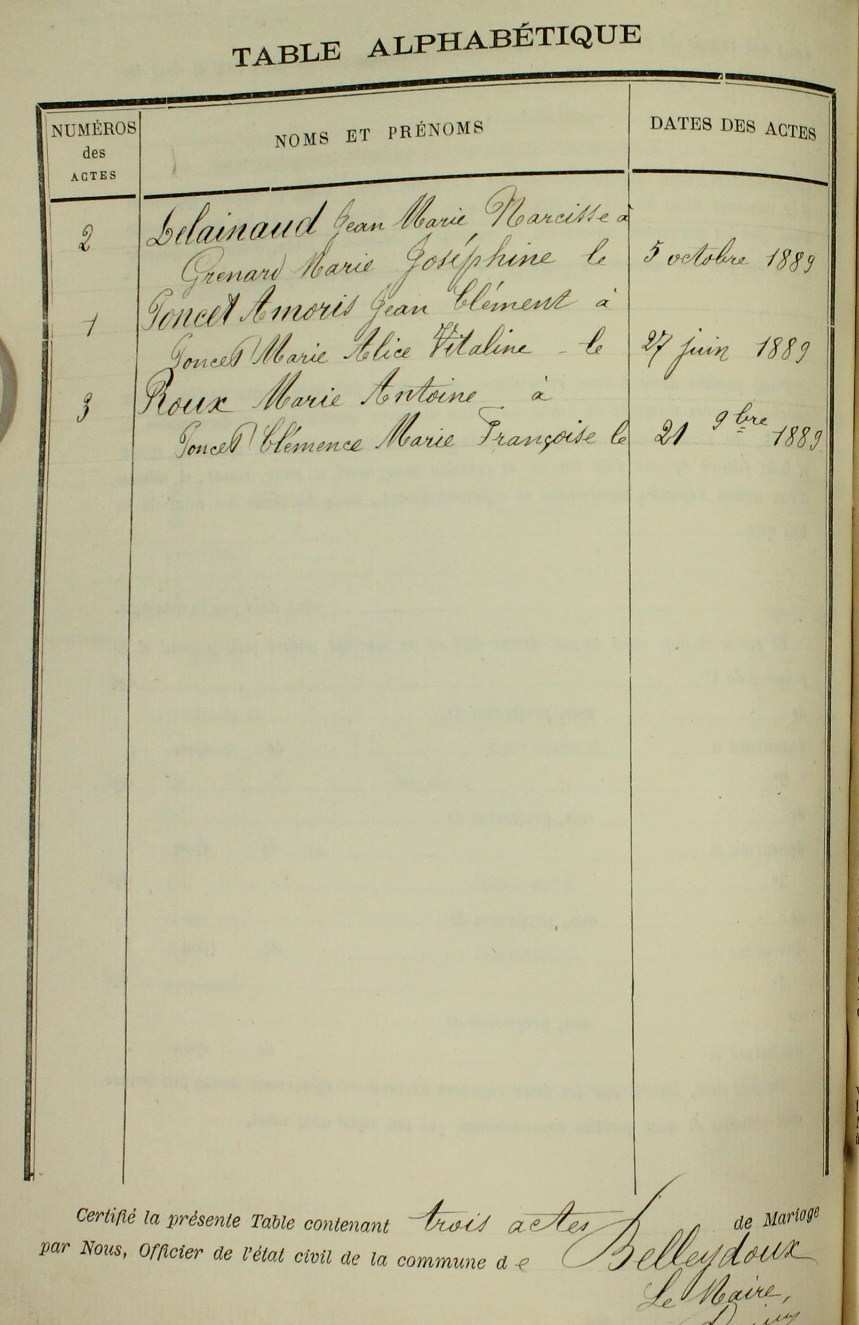 TABLE ALPHABÉTIQUE
NUMÉROS
des
ACTES
NOMS ET PRÉNOMS
DATES DES ACTES
2 Delainaud Jean Marie Narcisse à
Grenard Marie Joséphine le 5 octobre 1889
1 Poncet Amoris Jean Clément à
Poncet Marie Alice Vitaline - le 27 juin 1889
3 Roux Marie Antoine à
Poncet Clémence Marie Françoise le 21 9bre 1889
Certifié la présente Table contenant trois actes de Mariage
par Nous, Officier de l'état civil de la commune de Belleydoux
Le Maire,